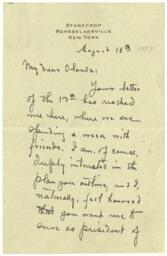 STONECROP
RENSSELAERVILLE
NEW YORK
August 18th
My dear Orlando:
Your letter
of the 17th has reached
me here, where we are
spending a week with
friends. I am, of course,
deeply interested in the
plan you outline, and I,
naturally, feel honored
that you want me to
serve as president of